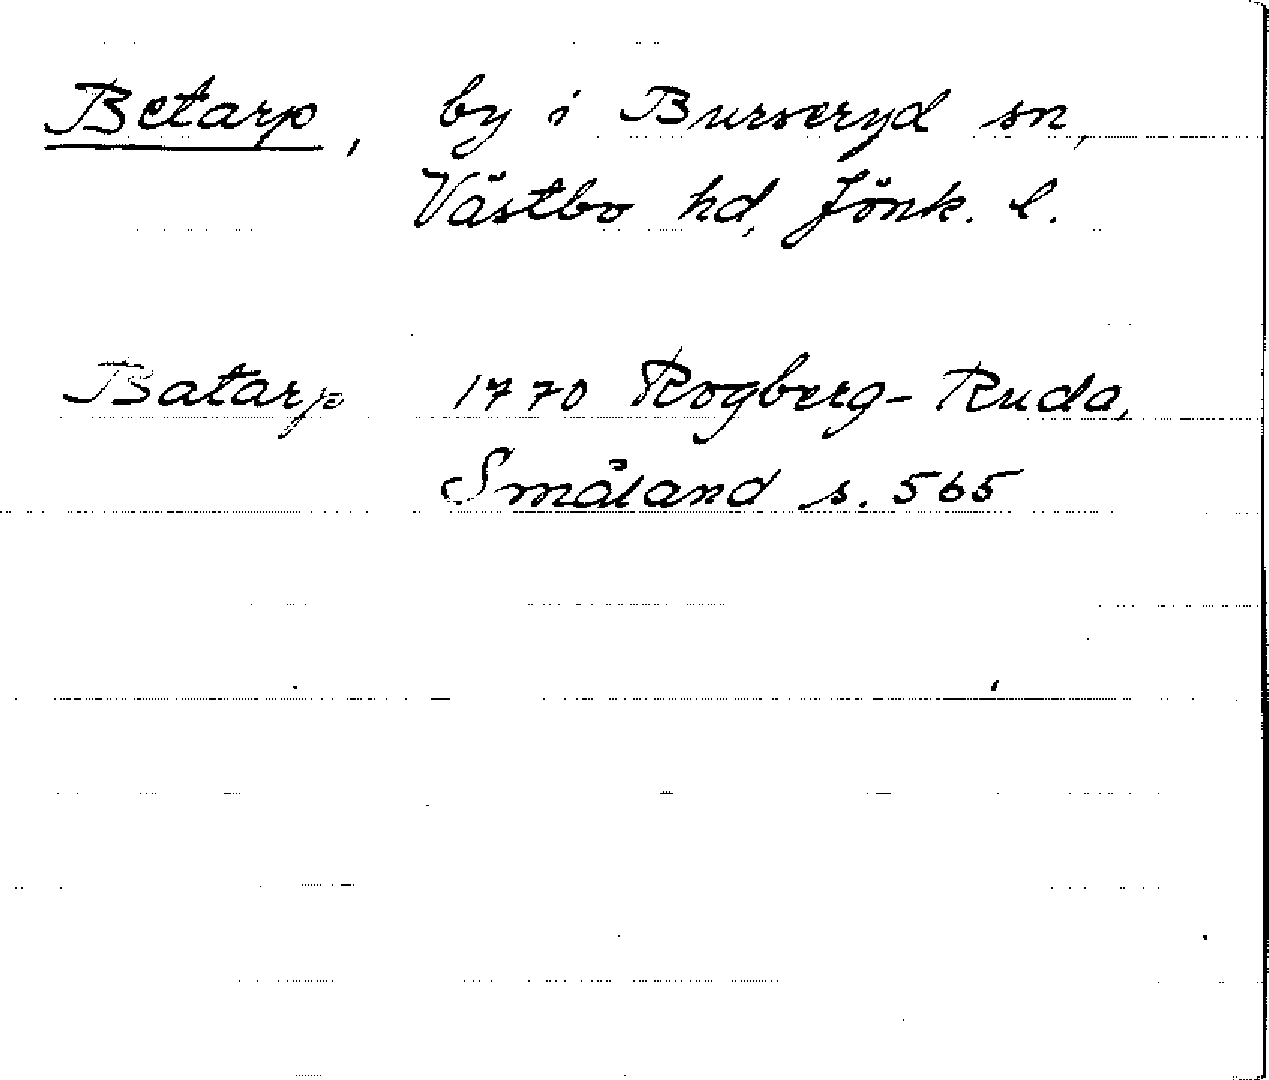 Betarp, by i Burseryd sn,
Västbo hd, Jönk. l.
Batarp 1770 Rogberg-Ruda,
Småland s. 565